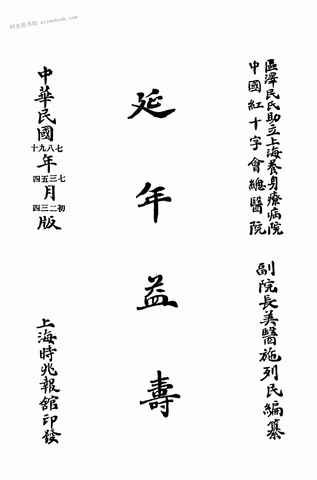 區澤民氏助立上海養身療病院
中國紅十字會總醫院
副院長美醫施列民編纂
延年益壽
中華民國七八九十年七三五四月初二三四版
上海時兆報館印發